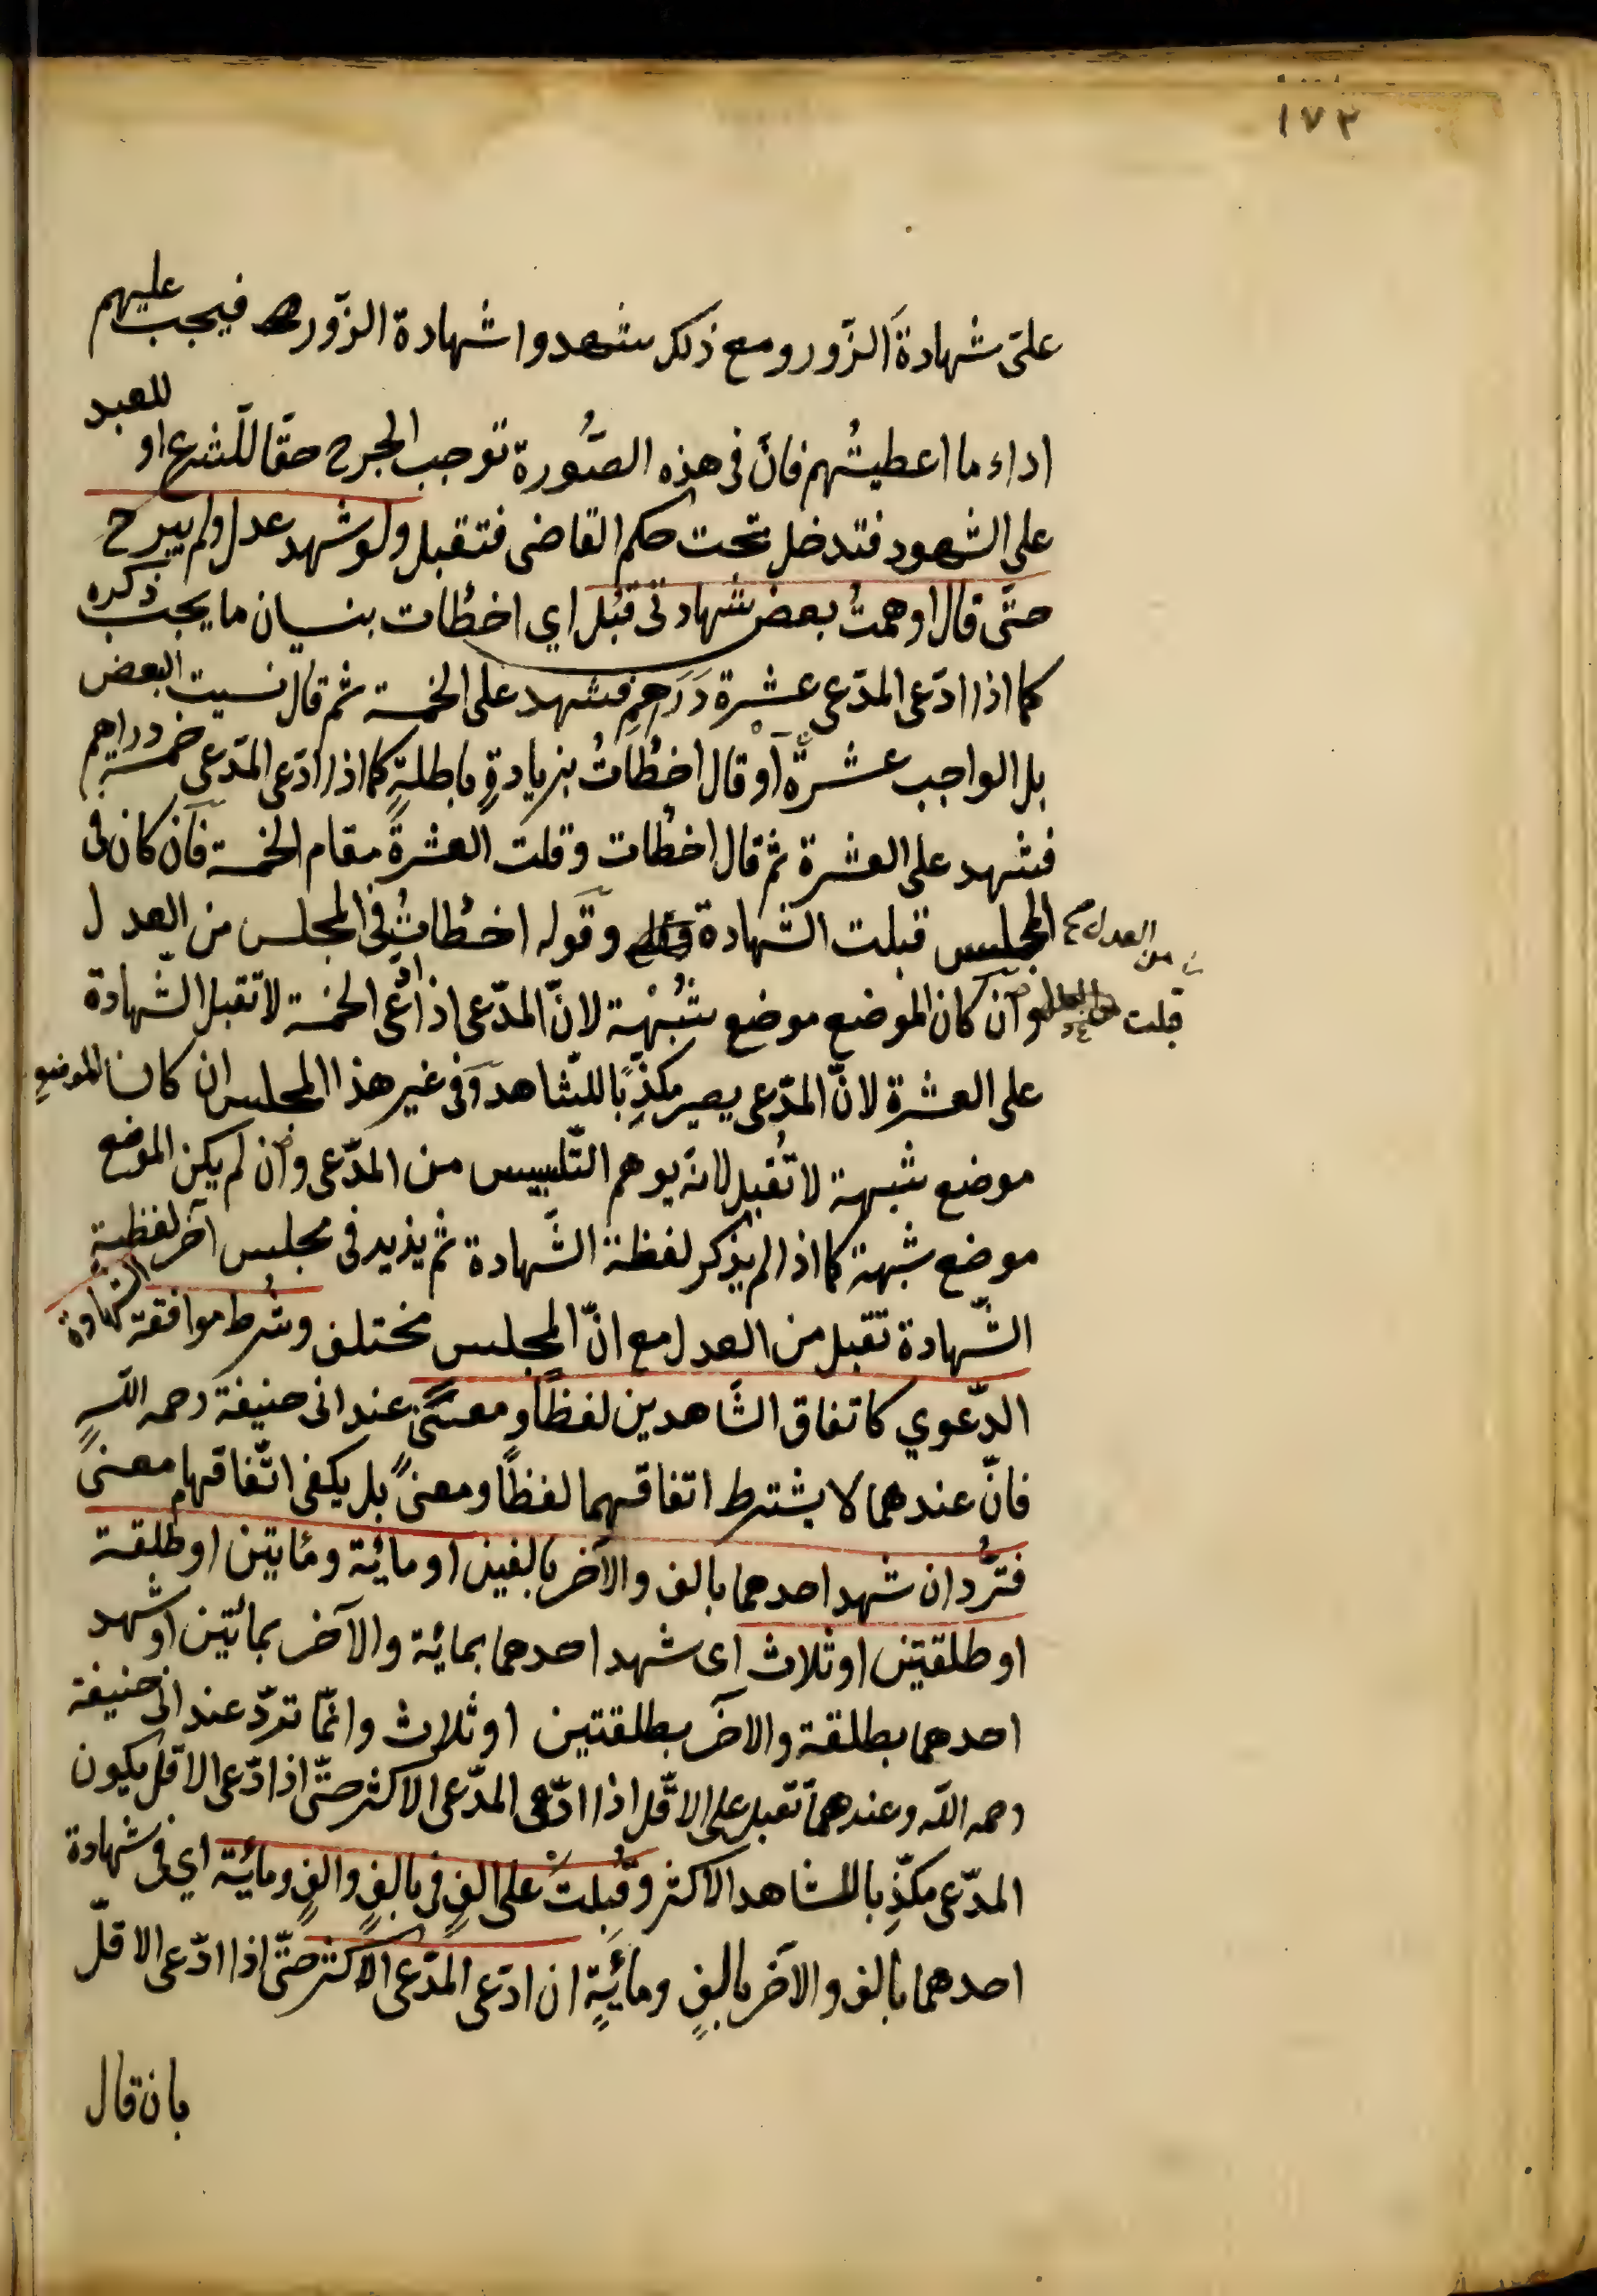 ١٧٣
على شهادة الزّور ومع ذلك شهدوا شهادة الزّور فيجب عليهم
اداء ما اعطيتُهم فانّ في هذه الصُّورة توجب الجرح حقّا للشرع او للعبد
على الشهود فتدخل تحت حكم القاضى فتقبل ولو شهد عدل ولم يبرح
حتّى قال اوهمتُ بعض شهادتى تقبل اي اخطأت بنسيان ما يجب ذكره
كما اذا ادّعى المدّعى عشرة دَرَاهِمِ فشهد على الخمسة ثم قال نسيت البعض
بل الواجب عشرةٌ او قال اخطأتُ بزيادةٍ باطلةٍ كما اذا ادّعى المدّعى خمسة دراهم
فشهد على العشرة ثم قال اخطأت وقلت العشرةَ مقام الخمسة فان كان فى
المجلس قبلت الشهادة وقوله اخطأتُ فى المجلس من العدل
من العدل
قبلت
وان كان الموضع موضع شُبُهة لانّ المدّعى اذا ادّعى الخمسة لا تقبل الشّهادة
على العشرة لانّ المدّعى يصير مكذِّبًا للشّاهد وفى غير هذا المجلس ان كان الموضع
موضع شبهة لا تُقبل لانه يوهم التّلبيس من المدّعى وان لم يكن الموضع
موضع شبهة كما اذا لم يذكر لفظة الشّهادة ثم يزيد فى مجلس آخر لفظةِ
الشّهادة تقبل من العدل مع انّ المجلس مختلف وشُرط موافقة الشهادة
الدّعوي كاتفاق الشّاهدين لفظًا ومعنًى عند ابى حنيفة رحمه اللّه
فانّ عندهما لا يشترط اتفاقهما لفظًا ومعنًى بل يكفى اتّفاقهما معنًى
فتُردّ ان شهد احدهما بالف والآخر بالفين او مائة ومايتين او طلقة
او طلقتين او ثلاث اى شهد احدهما بمائة والآخر بمائتين او شهد
احدهما بطلقة والاخر بطلقتين او ثلاث وانّما تردّ عند ابى حنيفة
رحمه اللّه وعندهما تقبل على الاقّل اذا ادّعى المدّعى الاكثر حتّى اذا ادّعى الاقل يكون
المدّعى مكذِّبا للشاهد الاكثر وقُبلتْ على الفٍ فى بالفٍ والفٍ ومائة اي فى شهادة
احدهما بالف والآخر بالفٍ ومائةٍ ان ادّعى المدّعى الاكثر حتّى اذا ادّعى الاقلّ
بان قال